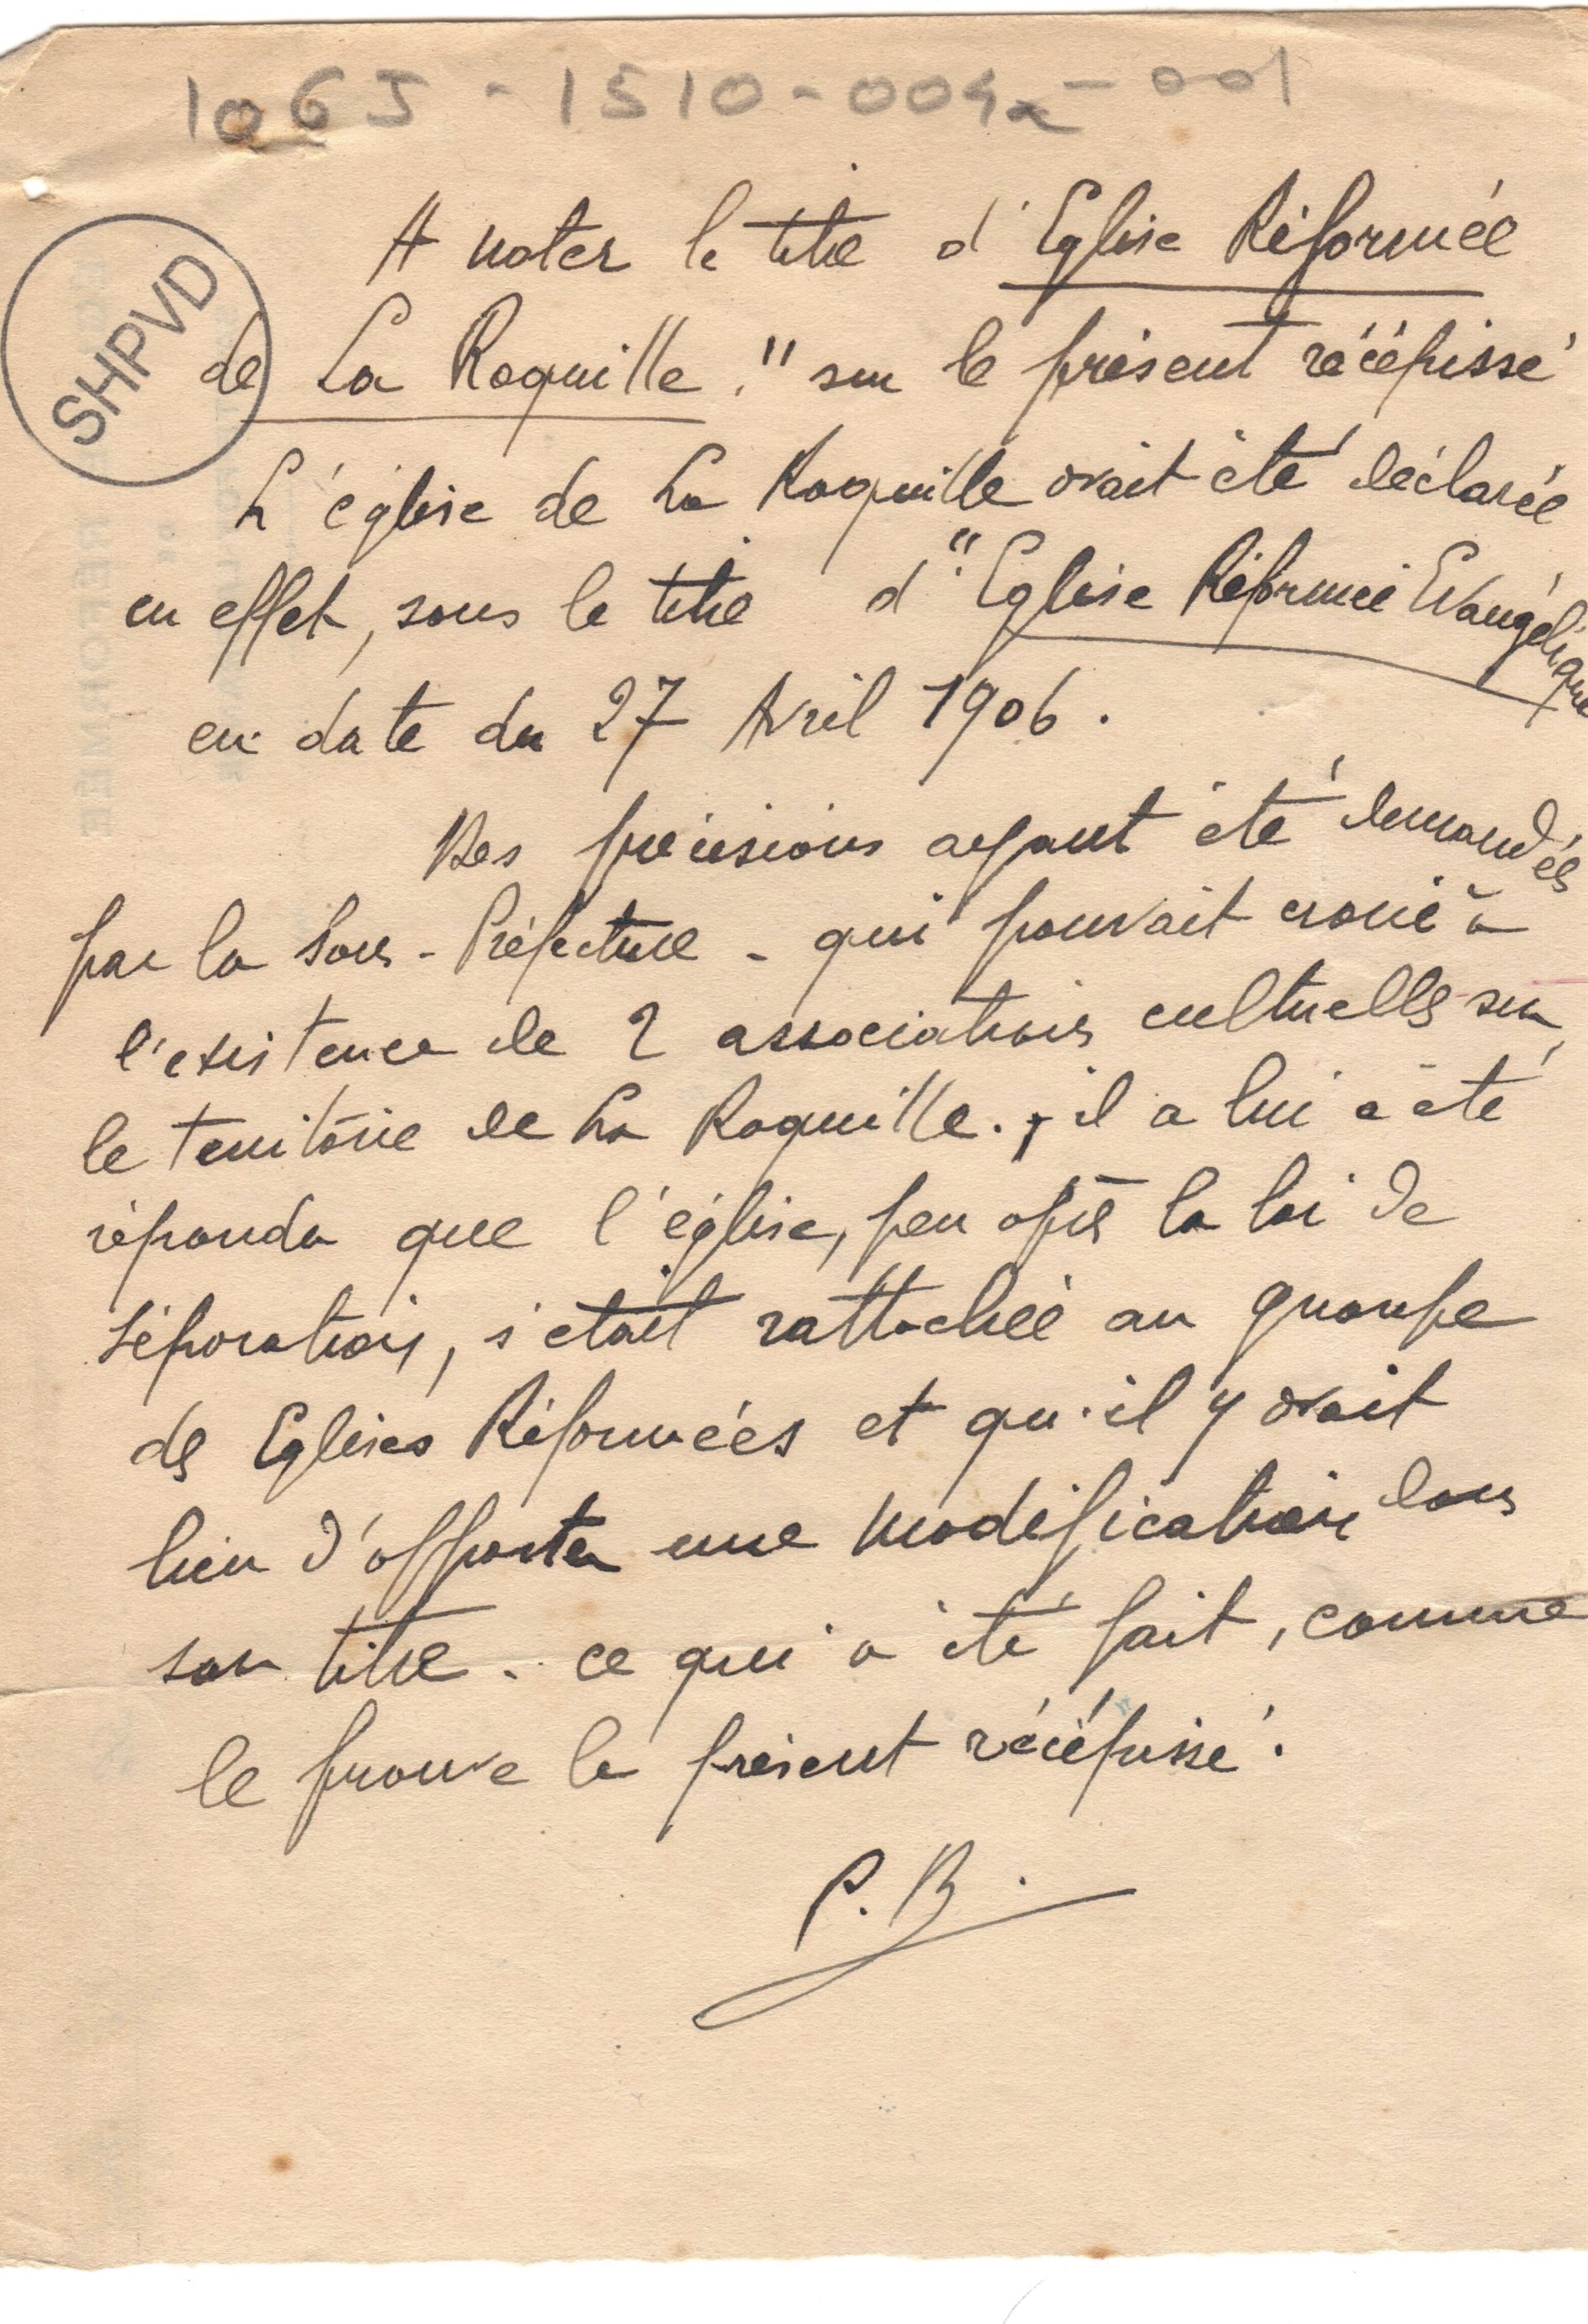 1063-1510-004a-001
SHPVD
A noter le titre d'Eglise Réformée
de La Roquille." sur le présent récépissé
L'église de La Roquille avait été déclarée
en effet, sous le titre d'"Eglise Réformée Evangélique
en date du 27 Avril 1906.
Des précisions ayant été demandées
par la Sous-Préfecture - qui pouvait croire à
l'existence de 2 associations cultuelles sur
le territoire de La Roquille. - il a lui a été
répondu que l'église, peu après la loi de
séparation, s'était rattachée au groupe
des Eglises Réformées et qu'il y avait
lieu d'apporter une modification dans
son titre - ce qui a été fait, comme
le prouve le présent récépissé.
P.B.